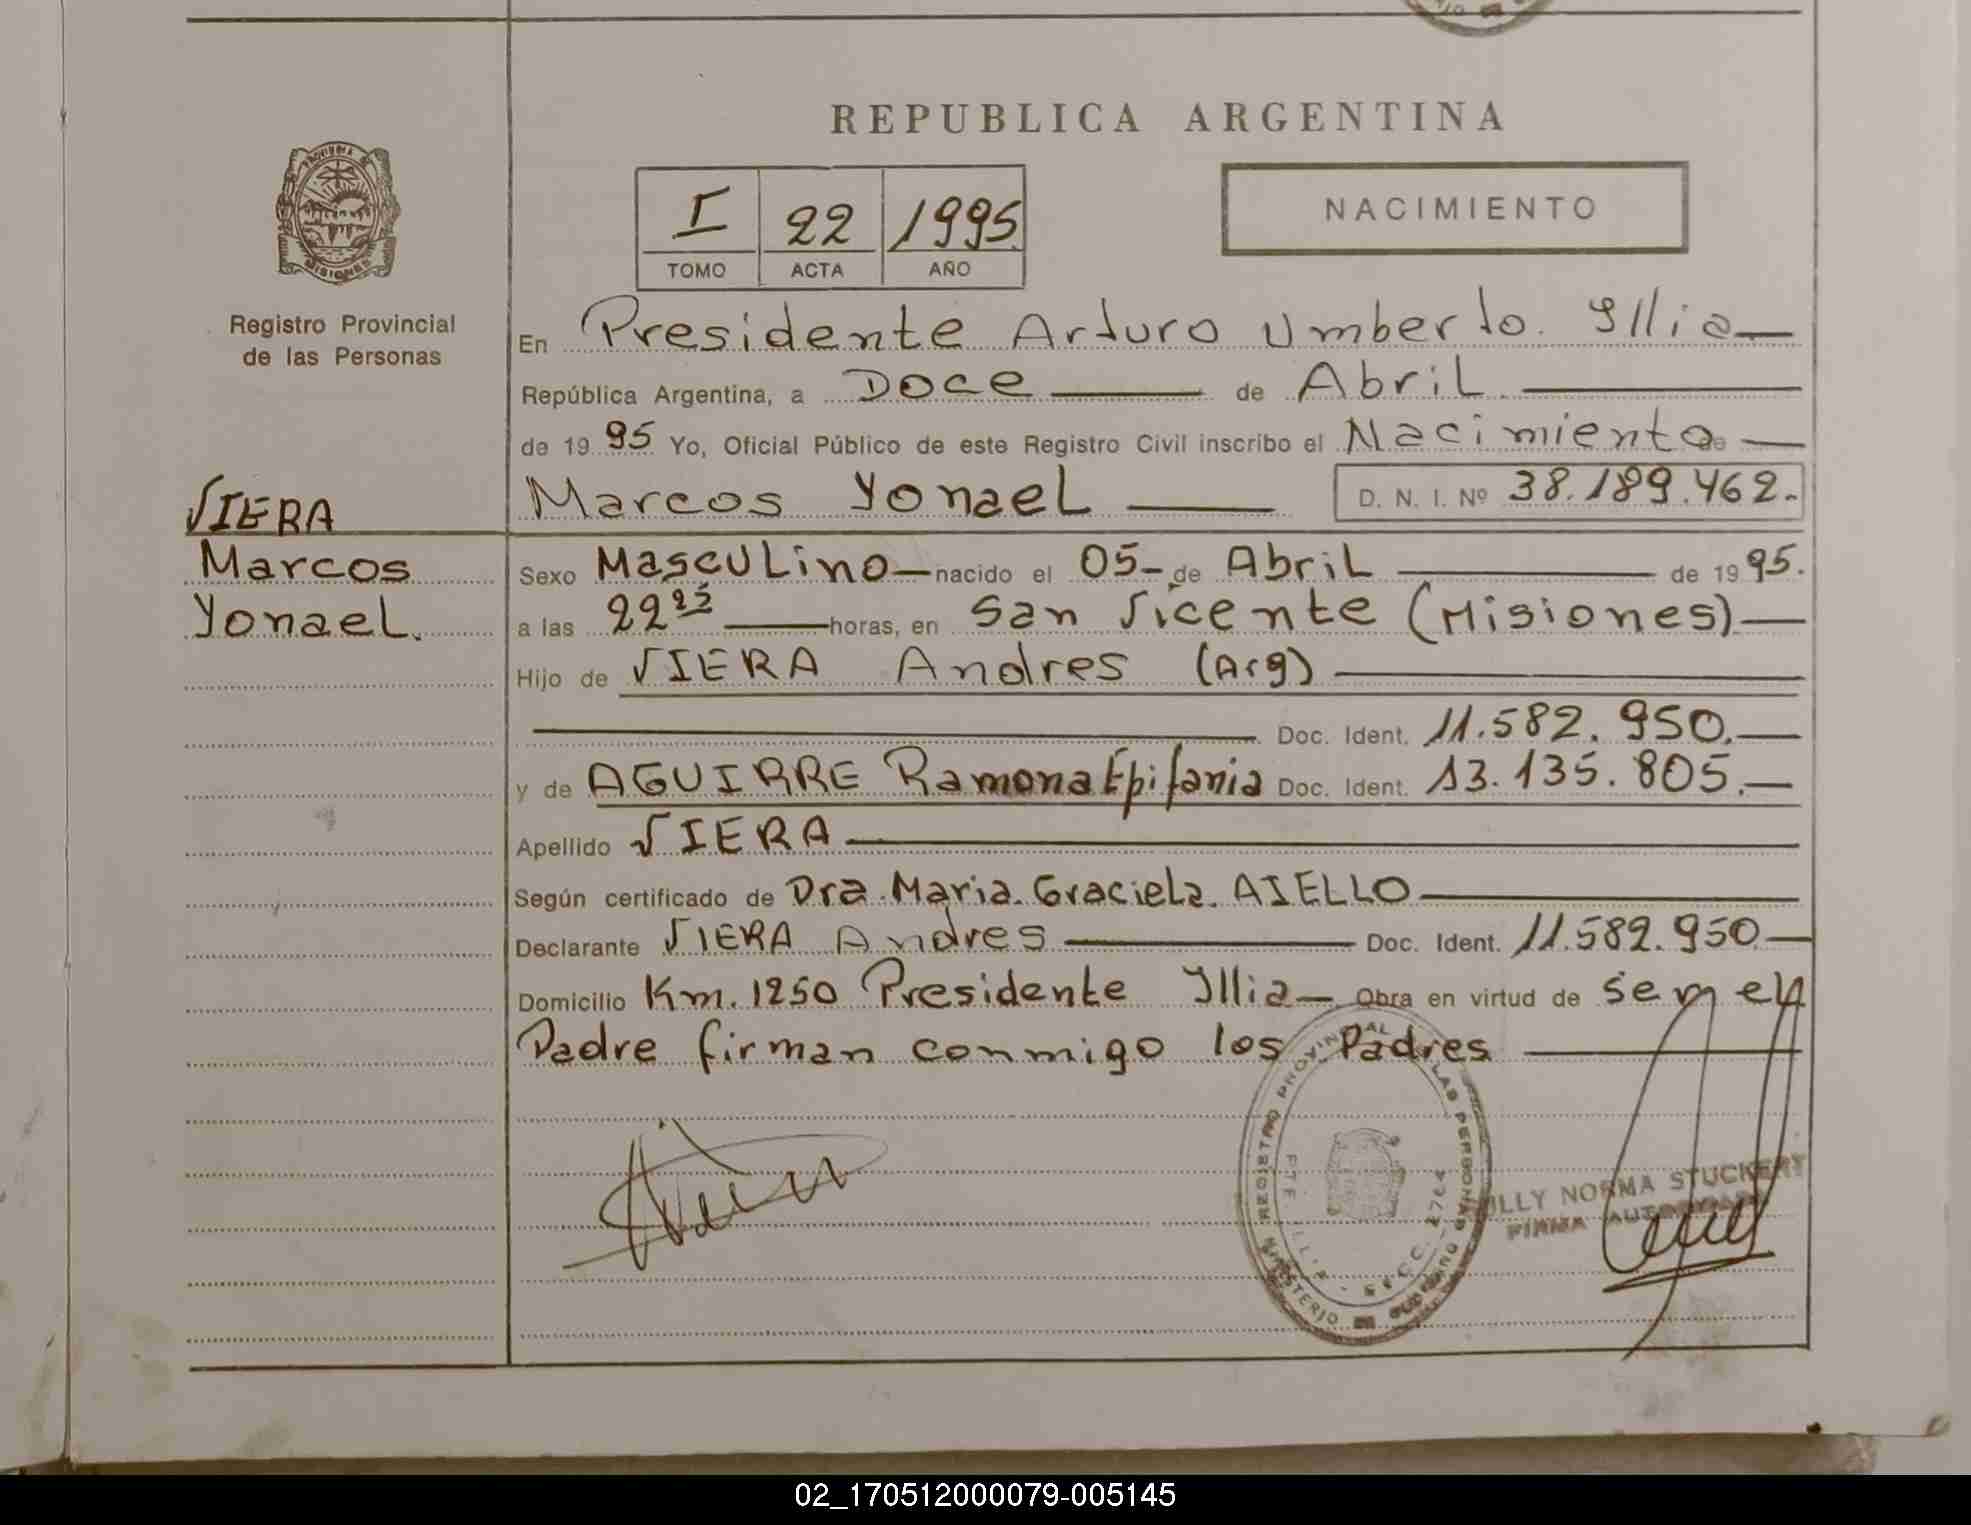 REPUBLICA ARGENTINA
PROVINCIA DE MISIONES
Registro Provincial
de las Personas
I 22 1995
TOMO ACTA AÑO
NACIMIENTO
En Presidente Arturo Umberto Yllia
República Argentina, a Doce de Abril
de 1995 Yo, Oficial Público de este Registro Civil inscribo el Nacimiento de
Marcos Yonael D. N. I. Nº 38.189.462.
VIERA
Marcos
Yonael.
Sexo Masculino nacido el 05 de Abril de 1995.
a las 22 25 horas, en San Vicente (Misiones)
Hijo de VIERA Andres (Arg)
Doc. Ident. 11.582.950.
y de AGUIRRE Ramona Epifania Doc. Ident. 13.135.805.
Apellido VIERA
Según certificado de Dra. Maria Graciela AIELLO
Declarante VIERA Andres Doc. Ident. 11.582.950
Domicilio Km. 1250 Presidente Yllia Obra en virtud de ser el
Padre firman conmigo los Padres
REGISTRO PROVINCIAL LAS PERSONAS
MINISTERIO GOBIERNO
PTE. ILLIA - SECC. 2764
LLY NORMA STUCKERT
FIRMA AUTORIZADA
02_170512000079-005145